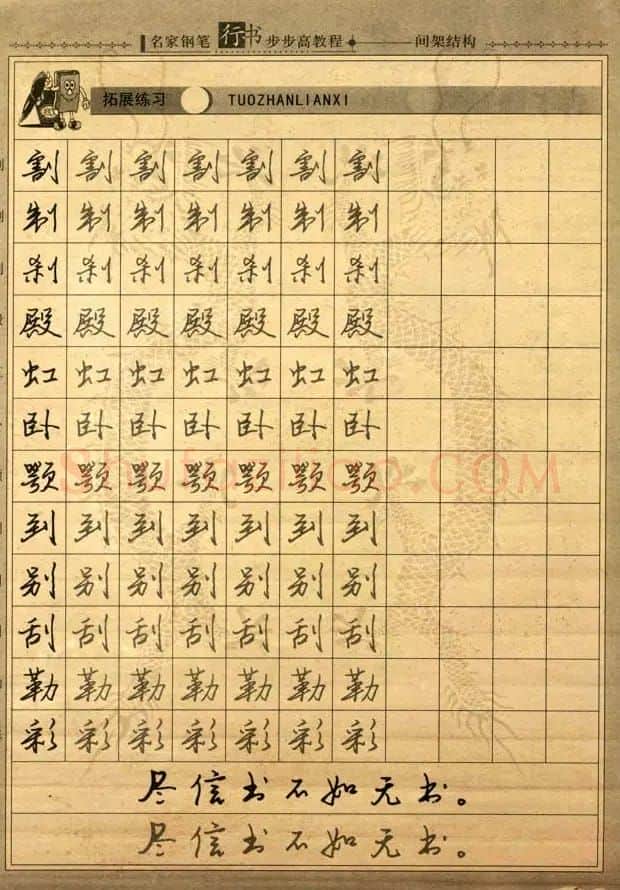 名家钢笔行书步步高教程 间架结构
拓展练习 TUOZHANLIANXI
割割割割割割割
制制制制制制制
刹刹刹刹刹刹刹
殿殿殿殿殿殿殿
虹虹虹虹虹虹虹
卧卧卧卧卧卧卧
颚颚颚颚颚颚颚
到到到到到到到
别别别别别别别
刮刮刮刮刮刮刮
勒勒勒勒勒勒勒
彩彩彩彩彩彩彩
尽信书不如无书。
尽信书不如无书。